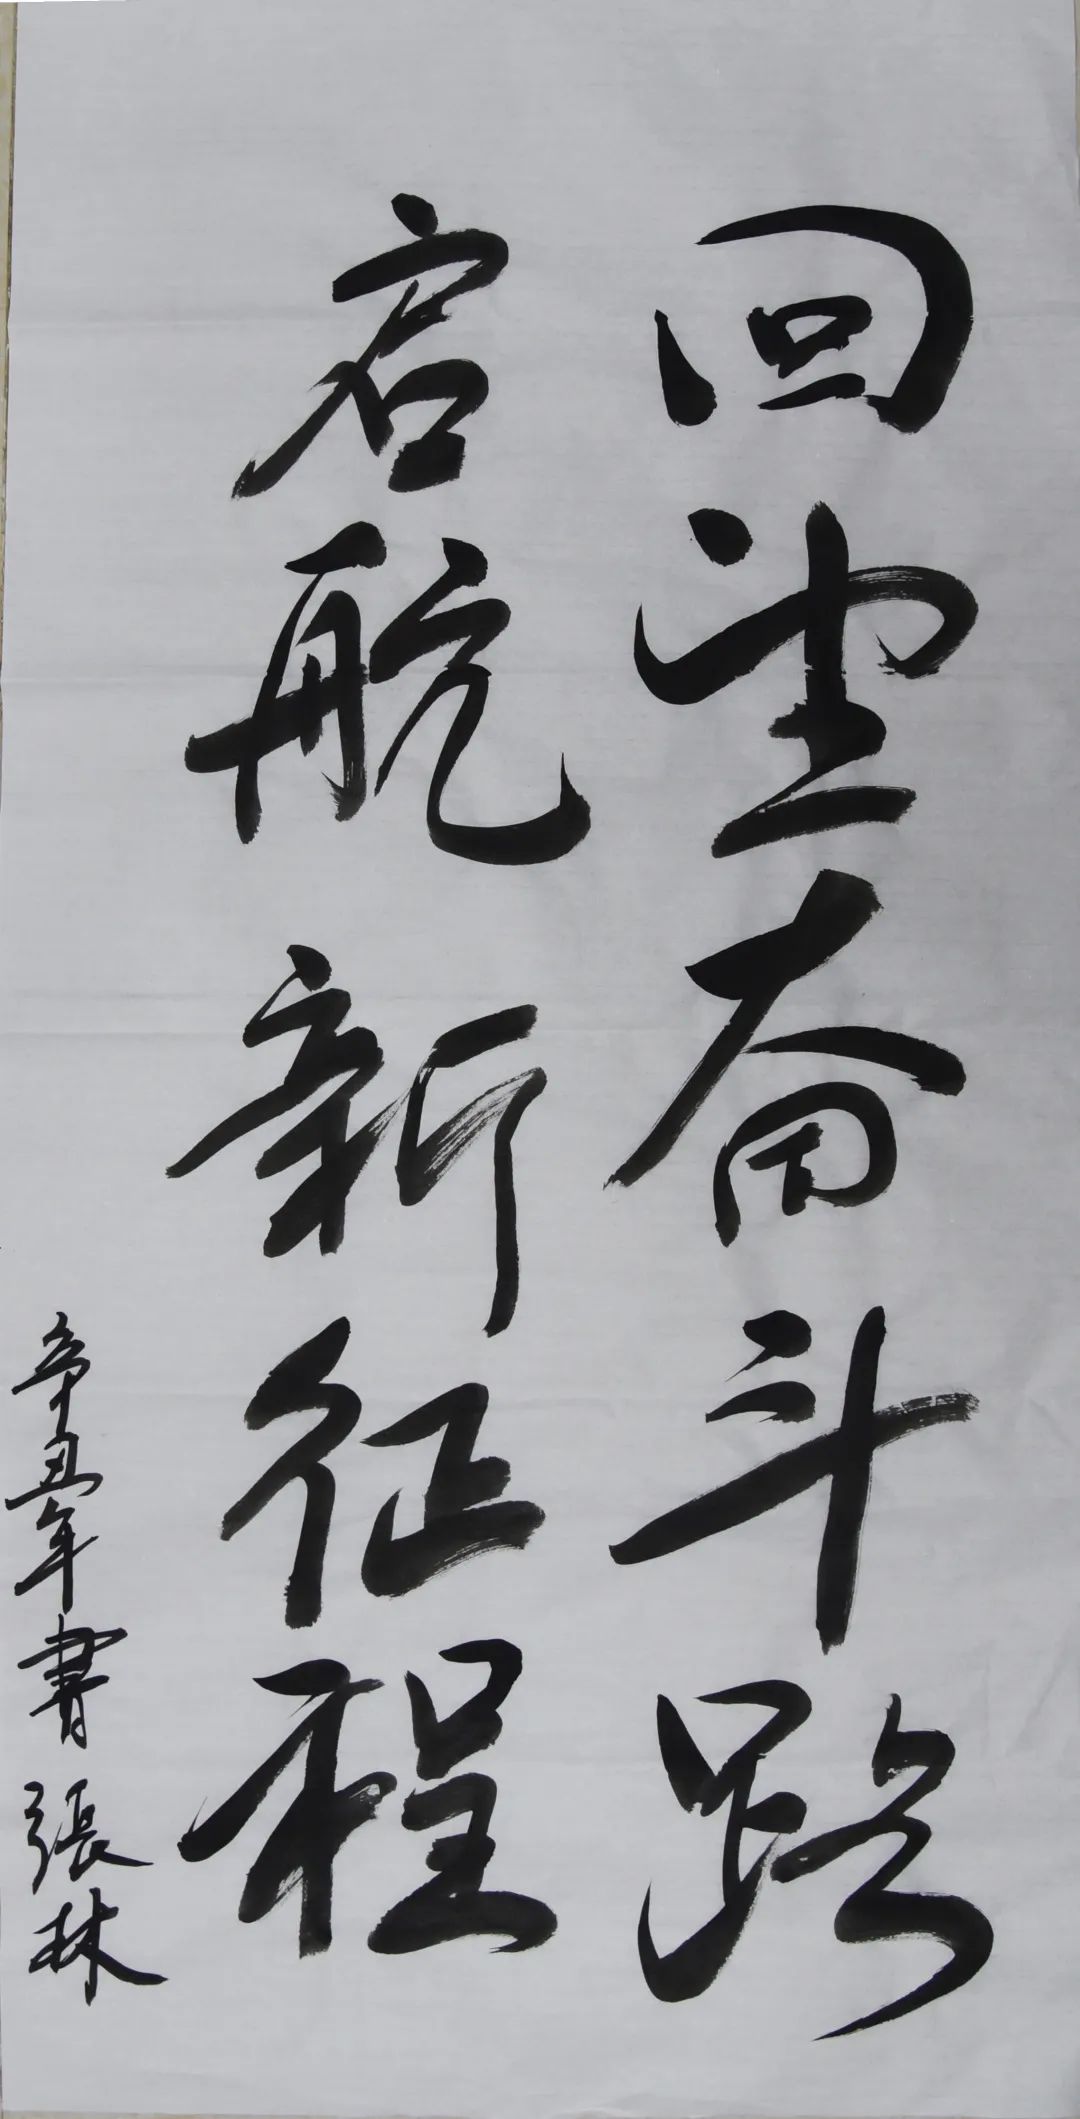 回望奋斗路
启航新征程
辛丑年書 張林